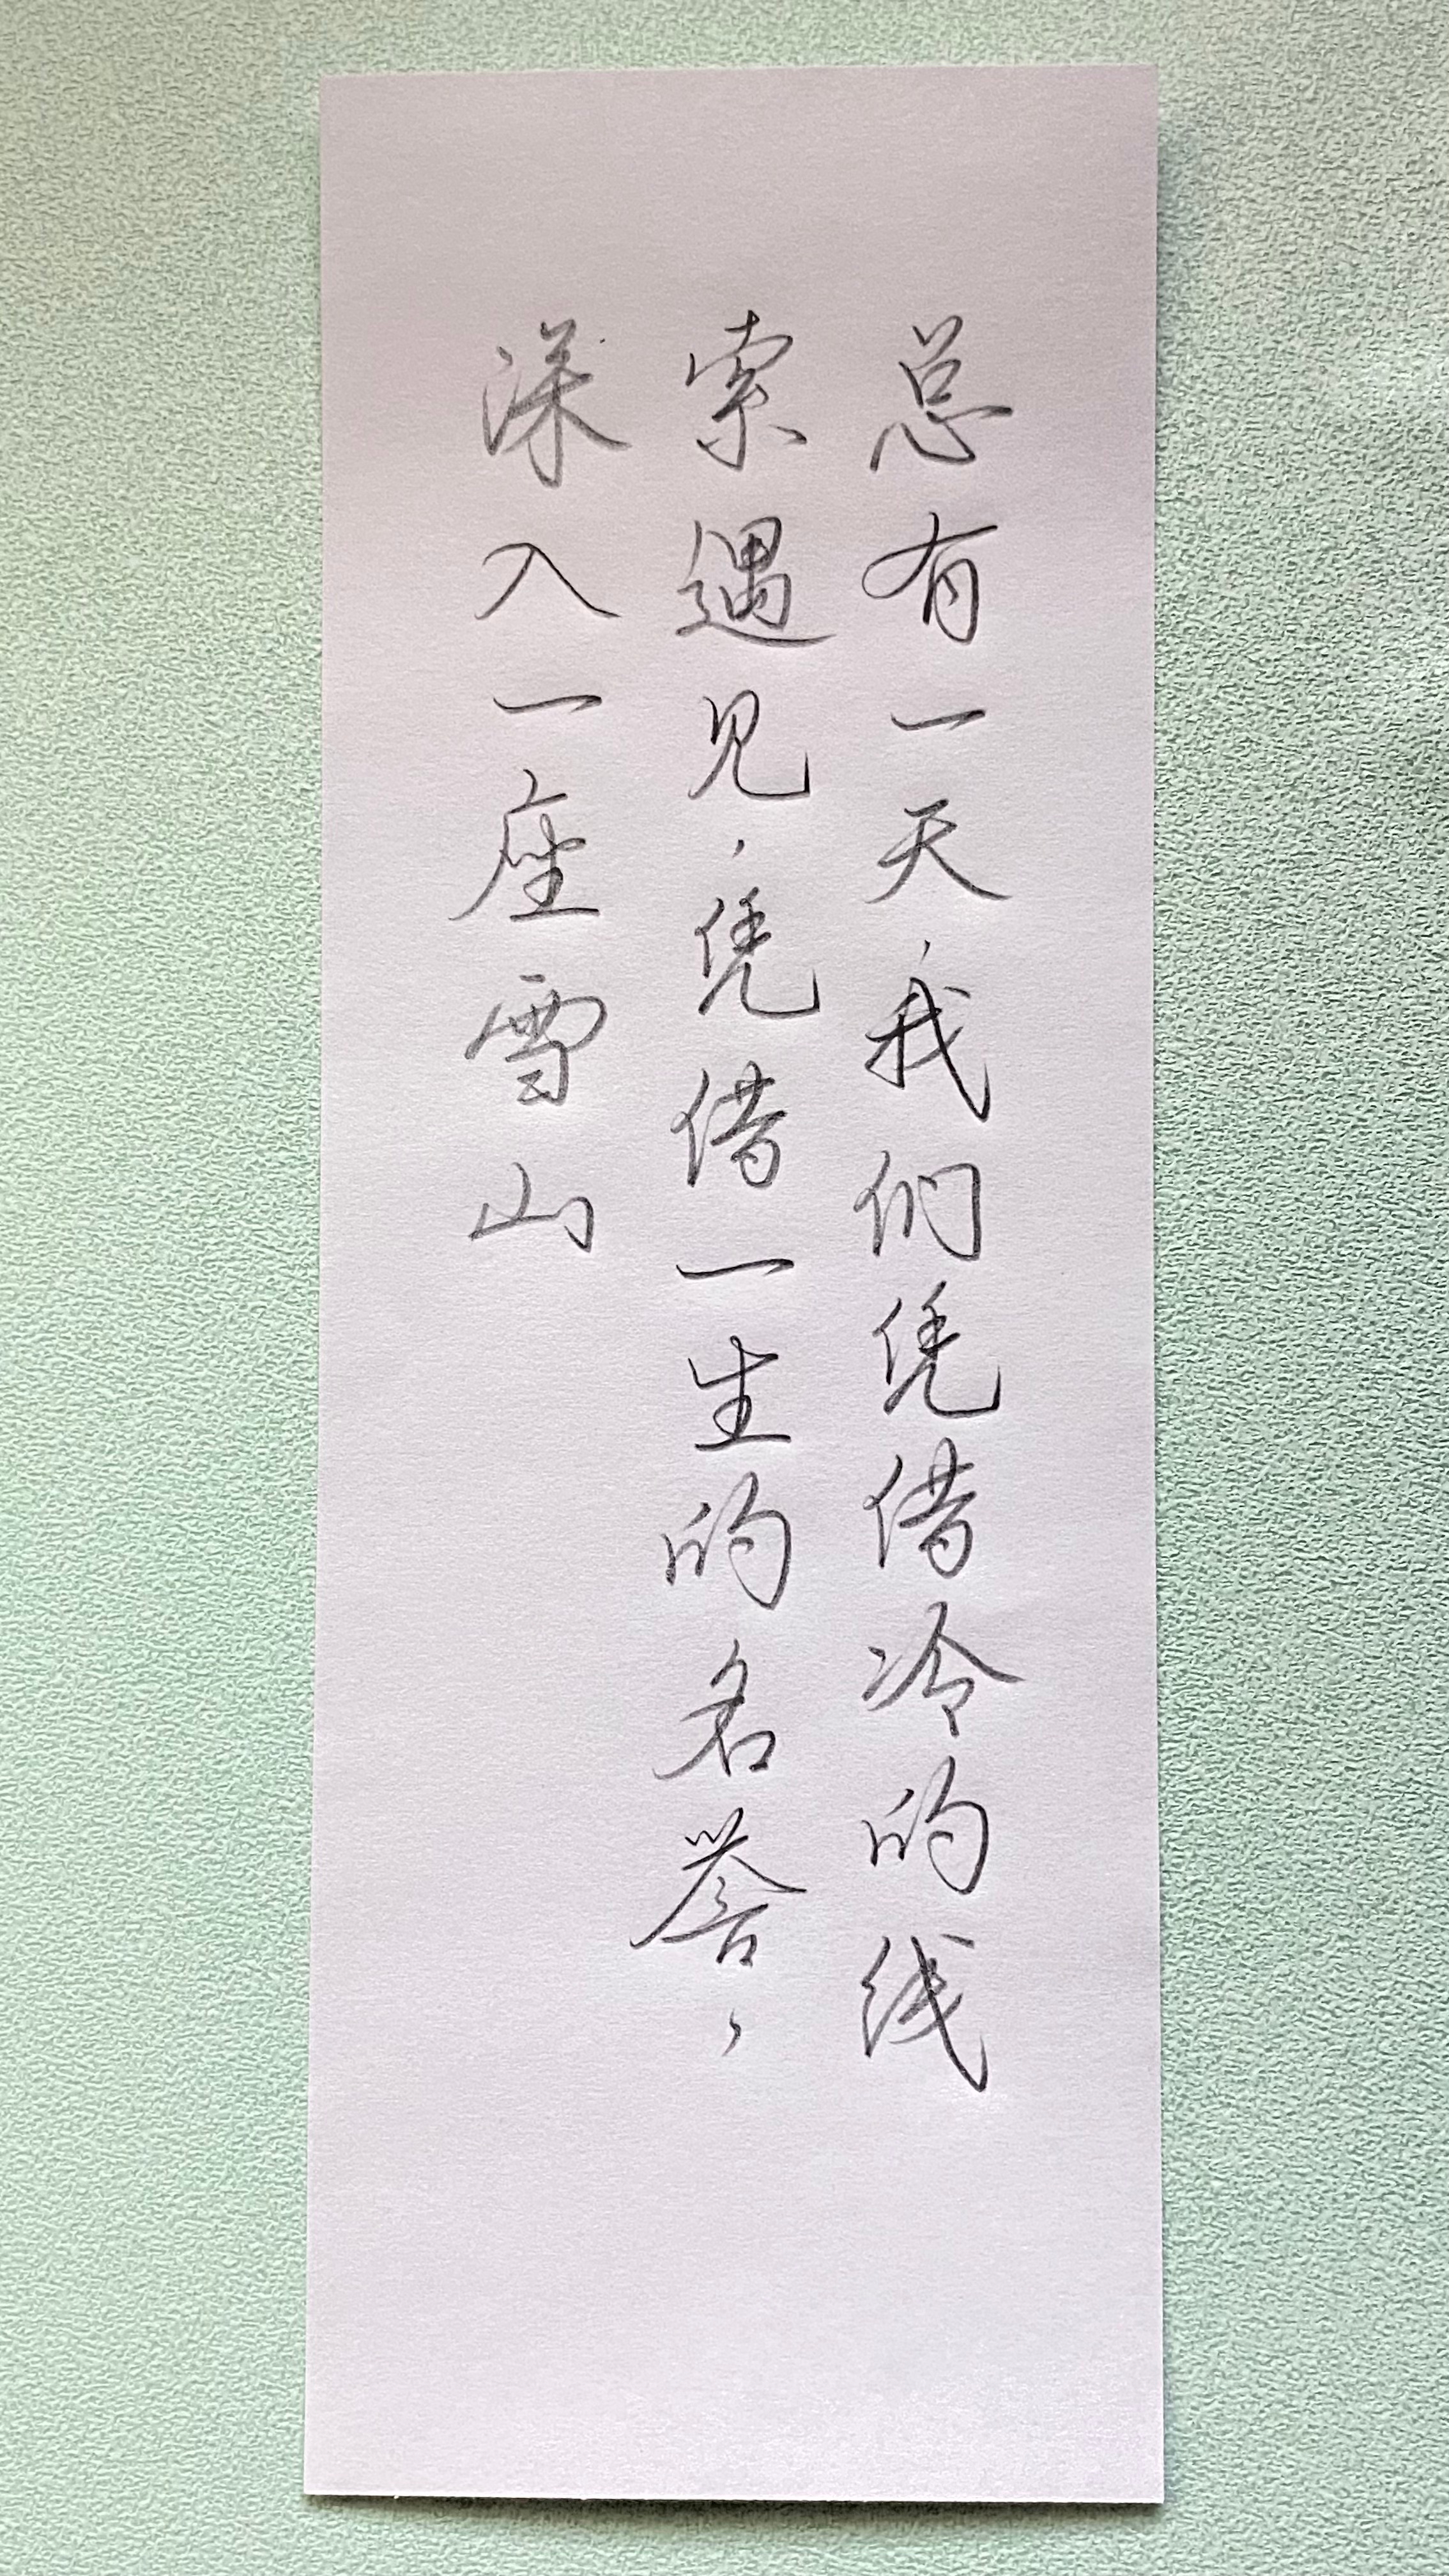 总有一天,我们凭借冷的线
索遇见,凭借一生的名誉,
深入一座雪山